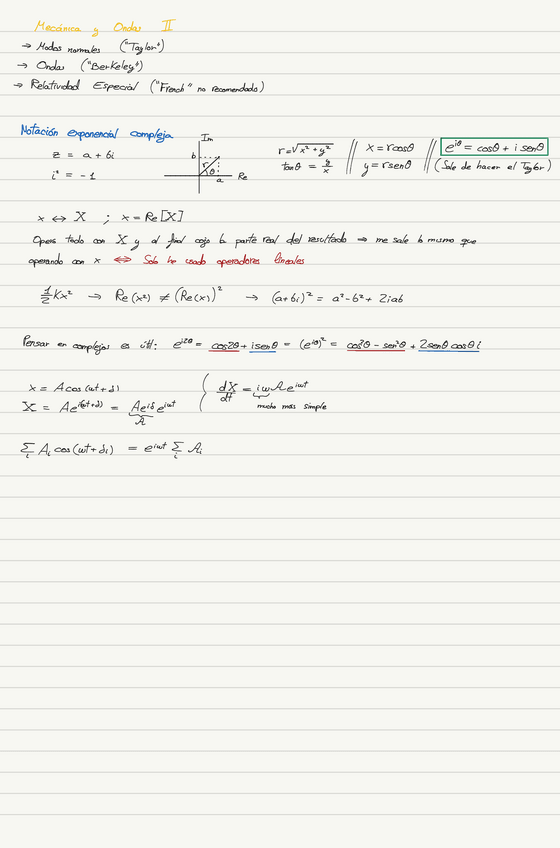 Mecánica y Ondas II
→ Modos normales ("Taylor")
→ Ondas ("Berkeley")
→ Relatividad Especial ("French" no recomendado)
Notación exponencial compleja
z = a + bi
i² = -1
Im
b
r
θ
a
Re
r = √x² + y²
tanθ = y/x
x = rcosθ
y = rsenθ
e^iθ = cosθ + i senθ
(Sale de hacer el Taylor)
x ↔ X ; x = Re[X]
Opero todo con X y al final cojo la parte real del resultado ⇒ me sale lo mismo que
operando con x ⇔ Solo he usado operadores lineales
½Kx² → Re(x²) ≠ (Re(x))² → (a+bi)² = a²-b² + 2iab
Pensar en complejos es útil: e^i2θ = cos2θ + isenθ = (e^iθ)² = cos²θ - sen²θ + 2senθ cosθ i
x = A cos(ωt + δ)
X = Ae^i(ωt+δ) = Ae^iδ e^iωt
A
dX/dt = iωAe^iωt
mucho más simple
∑i Ai cos(ωt + δi) = e^iωt ∑i Ai